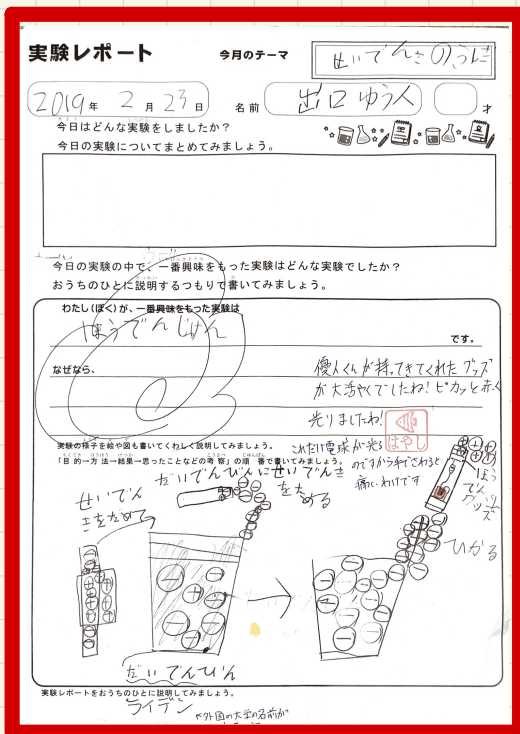 実験レポート
今月のテーマ
2019年 2月 23日 名前 出口 ゆう人 才
今日はどんな実験をしましたか?
今日の実験についてまとめてみましょう。
今日の実験の中で、一番興味をもった実験はどんな実験でしたか?
おうちのひとに説明するつもりで書いてみましょう。
わたし(ぼく)が、一番興味をもった実験は
ほうでんじけん
です。
なぜなら、
優人くんが持ってきてくれたグッズ
が大活やくでしたね!ピカッと赤く
光りましたね!
はやし
実験の様子を絵や図も書いてくわしく説明してみましょう。
「目的→方法→結果→思ったことなどの考察」の順番で書いてみましょう。
これだけ電球が光る
のですから手でさわると
痛いわけです
せいでん
きをためて
だいでんひんにせいでんき
をためる
ほう
でん
グッズ
ひかる
だいでんひん
実験レポートをおうちのひとに説明してみましょう。
ライデン
外国の大学の名前が